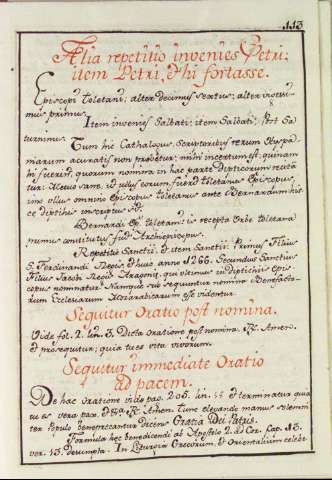 113
Alia repetitio invenies Petri:
item Petri, & hi fortasse.
Episcopi Toletani; alter decimus sextus; alter
mus primus.
Item invenies Salbati: item Salbati; Sa
turnimus.
Tum hic Cathalogus Scriptoribus rerum Hyspa
niarum acuratis non probetur; mihi incertum est; quinam
hi fuerint, quorum nomina in hac parte Dipticorum recita
tur: Actuo sane, id ullus eorum fuerit Toletanus Episcopus,
imo ullus omnino Episcopus Toletanus ante Bernardum his
ce diptihis inscriptus
Bernardi Toletani; is recepta Urbe toletana
nunus constitutus fuit Archiepiscopus.
Repetitio Sanctii, & item Sanctii: Primus Filius
S. Ferdinandi Regis, & huic anno 1266. Secundus Sanctius
Filius Jacobi Regis Aragonii, qui ultimus in diptichis Epis
copus nominatur: Namque sequuntur nomina Benefacto
rum Ecclesiarum Mozarabicarum esse videntur.
Sequitur Oratio post nomina.
Vide fol. 2. lin. 3. Dicta oratione post nomina. R. Amen.
et prosequitur; quia tu es vita vivorum.
Sequitur immediate Oratio
ad pacem.
De hac oratione vide pag. 206. lin. 15 et terminatur quia
tu es vera pax & R. Amen. Tunc elevando manus solemni
ter Populo benepreccantur dicens Gratia Dei Patris.
Formula hec benedicendi ab Apostolo 2. ad Cor. Cap. 13.
ver. 13. desumpta. In Liturgia Grecorum, & Orientalium celebr